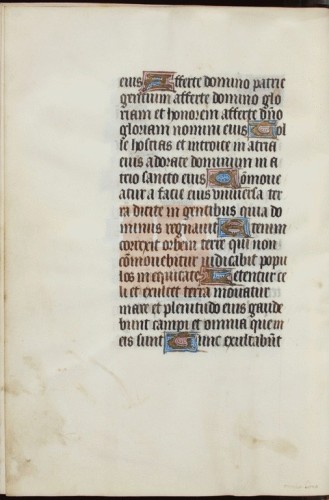 eius Afferte domino patrie
gentium afferte domino glo
riam et honorem afferte dño
gloriam nomini eius Tol
le hostias et introite in atria
eius adorate dominum in a
trio sancto eius Cõmoue
atur a facie eius vniuersa ter
ra dicite in gentibus quia do
minus regnauit Etenim
correxit orbem terre qui non
cõmouebitur iudicabit popu
los in equitate Letentur ce
li et exultet terra moueatur
mare et plenitudo eius gaude
bunt campi et omnia que in
eis sunt Tunc exultabũt